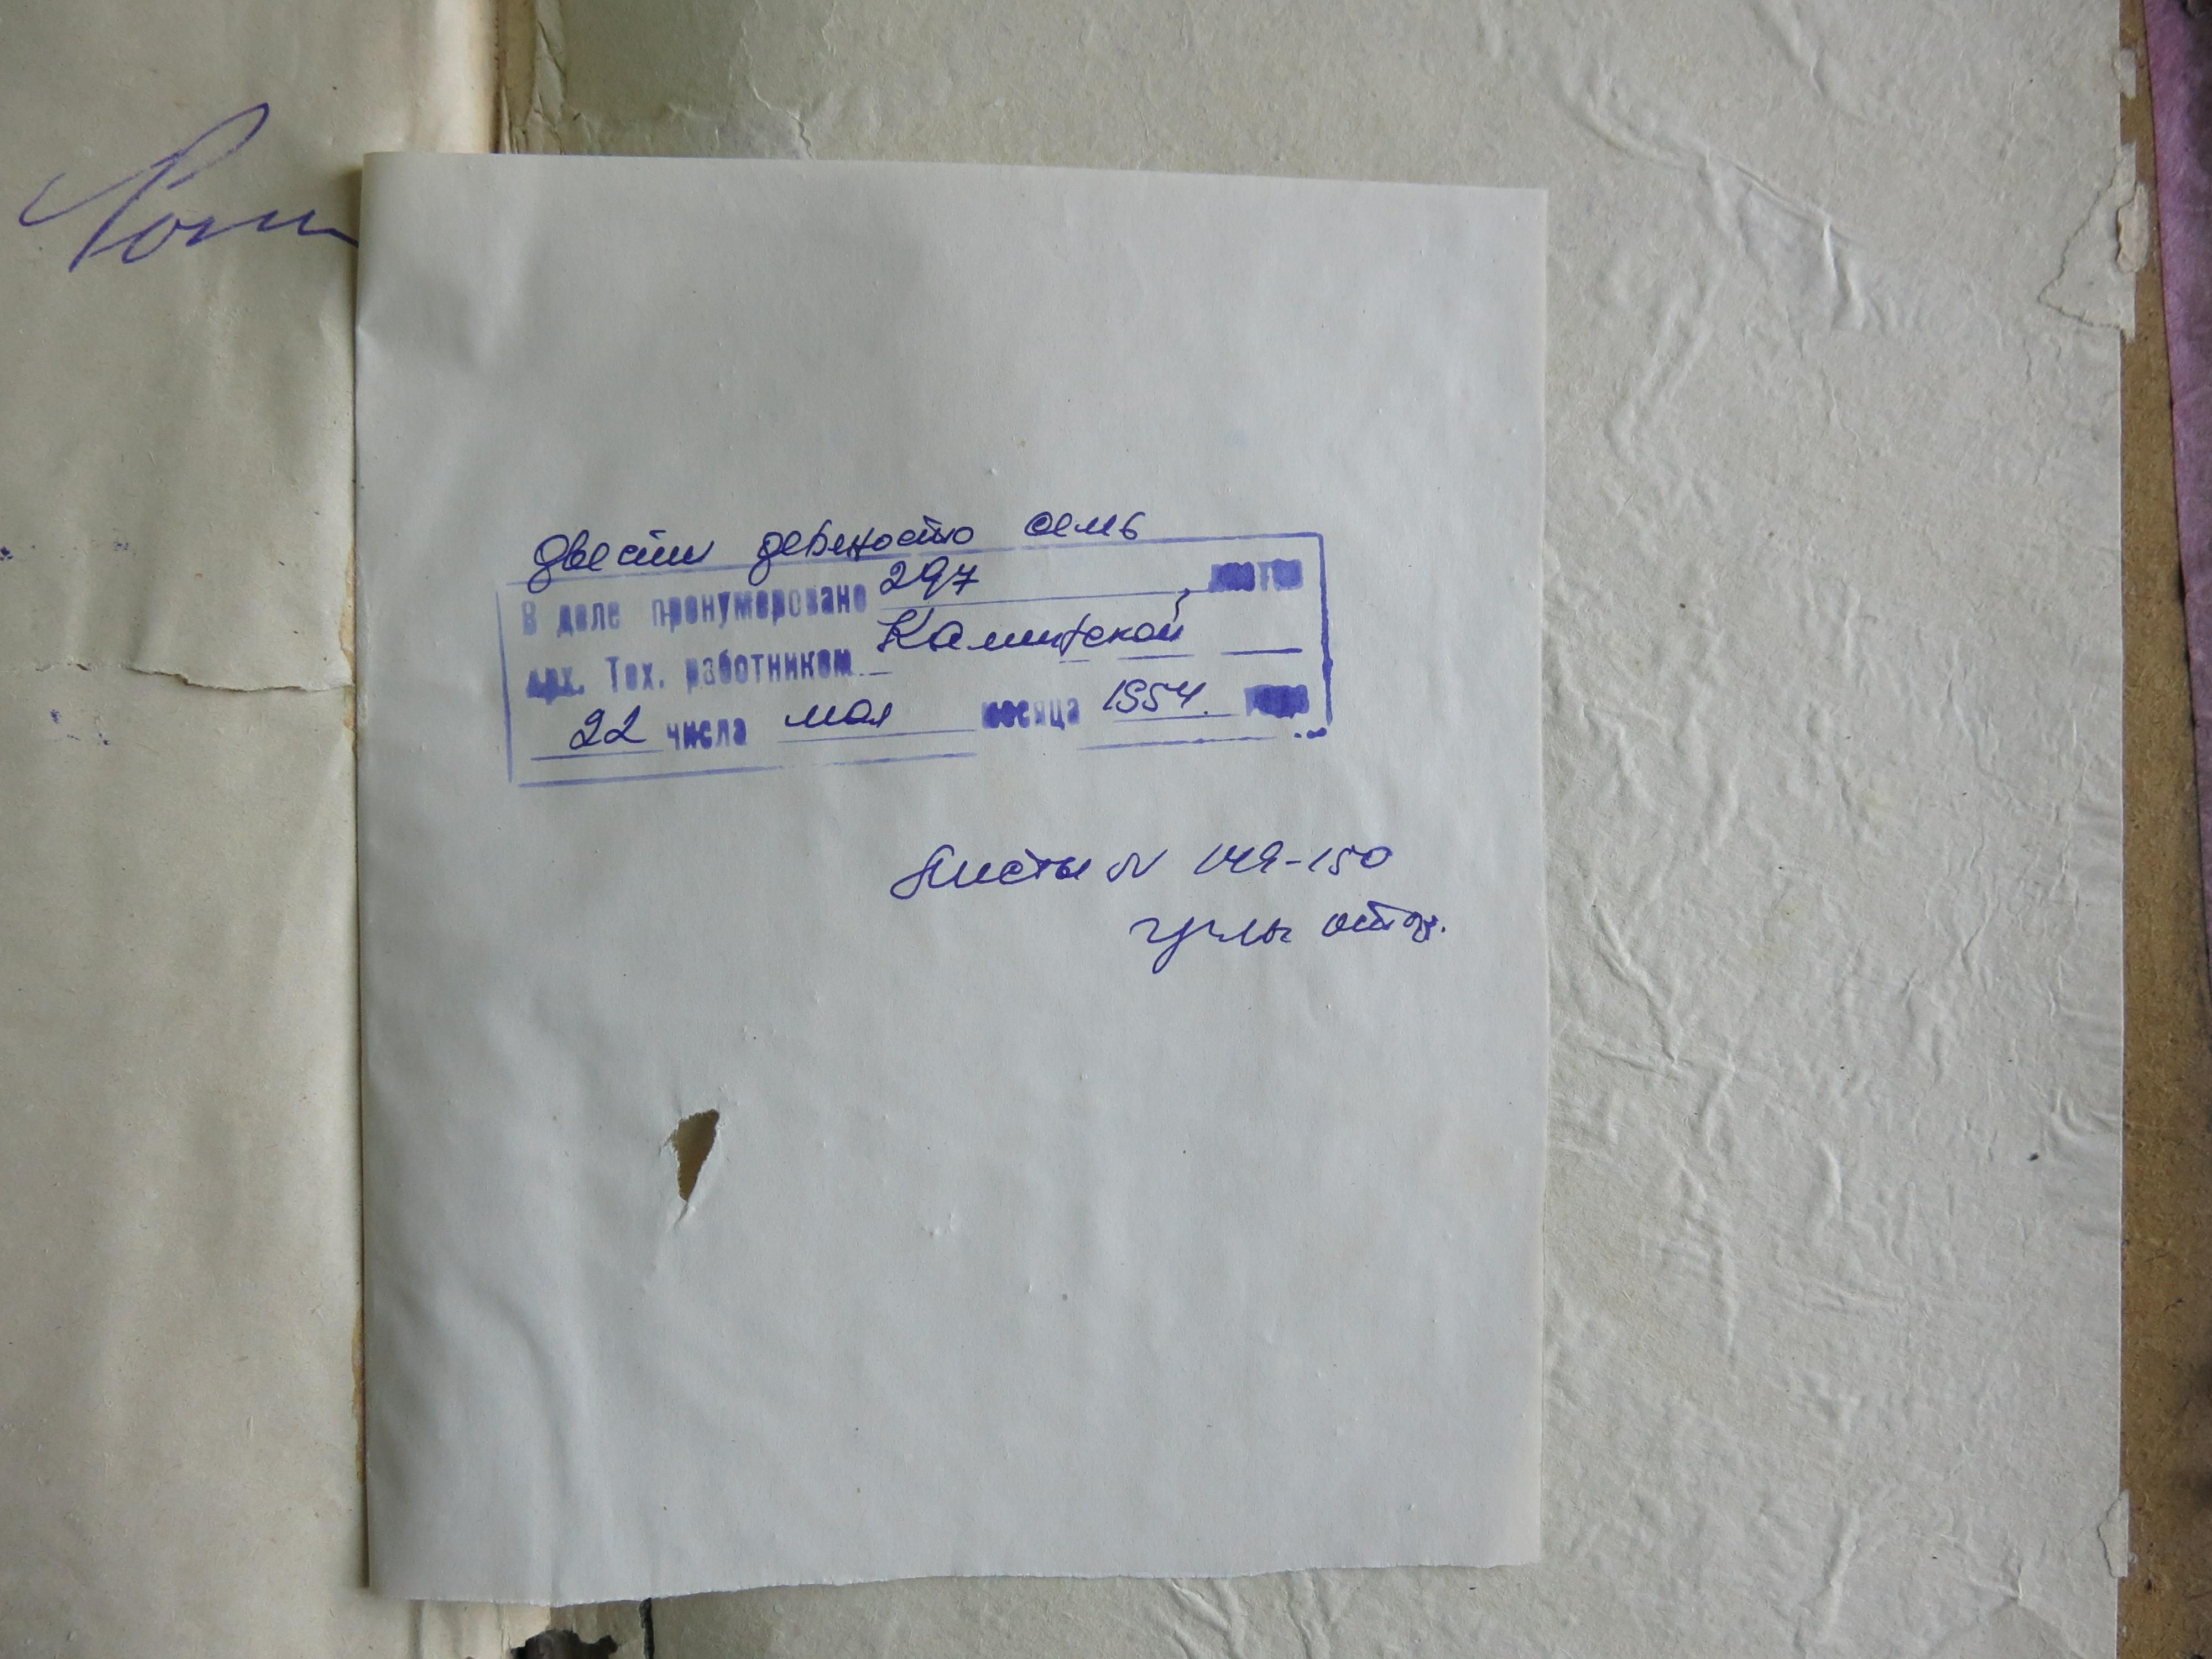 двести девяносто семь
В деле пронумеровано 297 листов
Арх. Тех. работником
22 числа мая месяца 1954. года
Листы N 149-150
углы